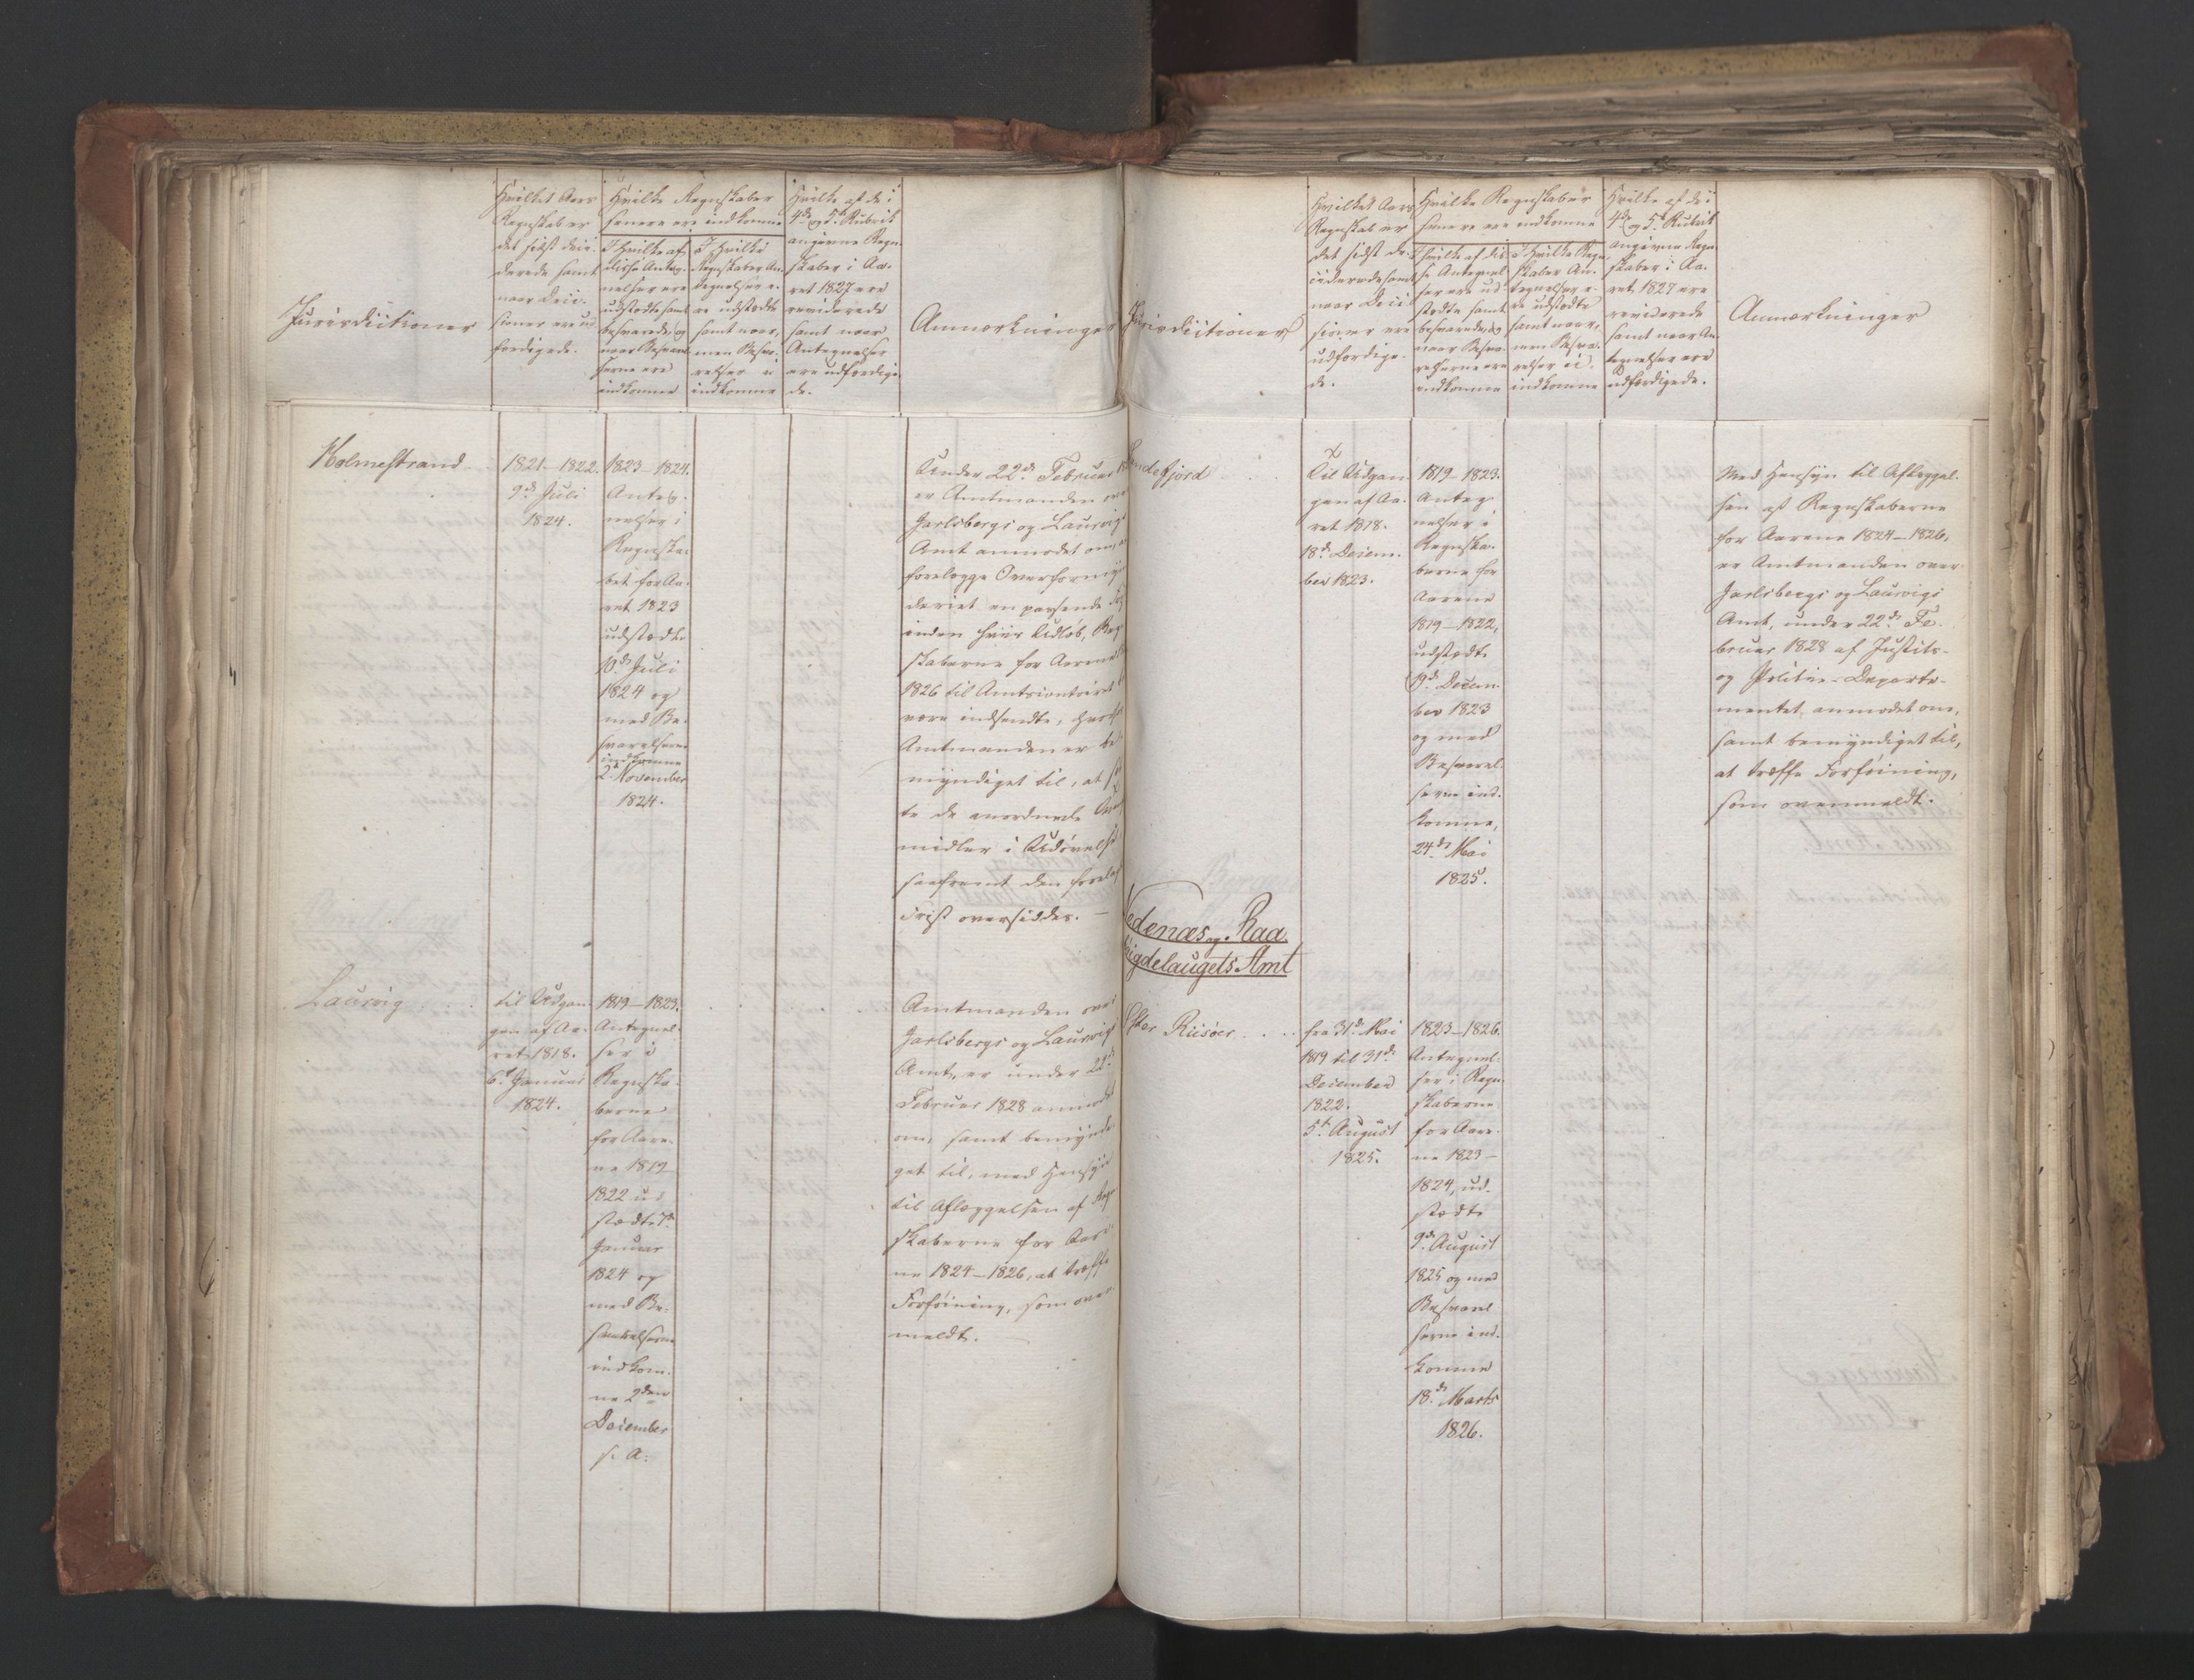 Jurisdictioner
Hvilket Aars
Regnskab er
det sidst deci-
derede samt
naar Deci-
sioner ere ud-
færdigede.
Hvilke Regnskaber
senere ere indkomne
I hvilke af
disse Anteg-
nelser ere
udstædte samt
besvarede, og
naar Besvarel-
serne ere
indkomne
I hvilke
Regnskaber An-
tegnelser e-
re udstædte
samt naar,
men Besva-
relser ei
indkomne
Hvilke af de i
4de og 5te Rubrik
angivne Regn-
skaber i Aa-
ret 1827 ere
reviderede
samt naar
Antegnelser
ere udfærdige-
de.
Anmærkninger
Holmestrand
1821–1822.
9de Juli
1824.
1823–1824.
Anteg-
nelser i
Regnska-
bet for Aa-
ret 1823
udstædte
10de Juli
1824 og
med Be-
svarelserne
indkomne
2den November
1824.
Under 22de Februar
er Amtmanden over
Jarlsbergs og Laurvigs
Amt anmodet om, at
forelægge Overformyn-
deriet en passende
inden hvis Udløb, Regn-
skaberne for Aarene
1826 til Amtscontoiret
være indsendte,
Amtmanden er be-
myndiget til, at
te de anordnede
midler i Udøvelse
saafremt den forelagte
Frist oversiddes. —
Laurvig . . .
til Udgan-
gen af Aa-
ret 1818.
6te Januar
1824.
1819–1823.
Antegnel-
ser i
Regnska-
berne
for Aare-
ne 1819–
1822 ud-
stædte 7de
Januar
1824 og
med Be-
svarelserne
indkom-
ne 2den
December
s. A.
Amtmanden over
Jarlsbergs og Laurvigs
Amt, er under 22de
Februar 1828 anmodet
om, samt bemyndi-
get til, med Hensyn
til Aflæggelsen af Regn-
skaberne for Aare-
ne 1824–1826, at træffe
Forføining, som oven-
meldt. —
Jurisdictioner
Hvilket Aars
Regnskab er
det sidst de-
ciderede samt
naar Deci-
sioner ere
udfærdige-
de.
Hvilke Regnskaber
senere ere indkomne
I hvilke af dis-
se Antegnel-
ser ere ud-
stædte samt
besvarede, og
naar Besva-
relserne ere
indkomne
I hvilke Regn-
skaber An-
tegnelser e-
re udstædte
samt naar,
men Besva-
relser ei
indkomne
Hvilke af de i
4de og 5te Rubrik
angivne Regn-
skaber i Aa-
ret 1827 ere
reviderede
samt naar An-
tegnelser ere
udfærdigede.
Anmærkninger
Sandefjord . .
Til Udgan-
gen af Aa-
ret 1818.
18de Decem-
ber 1823.
1819–1823.
Anteg-
nelser i
Regnska-
berne for
Aarene
1819–1822,
udstædte
19de Decem-
ber 1823
og med
Besvarel-
serne ind-
komne,
24de Mai
1825.
Med Hensyn til Aflæggel-
sen af Regnskaberne
for Aarene 1824–1826,
er Amtmanden over
Jarlsbergs og Laurvigs
Amt, under 22de Fe-
bruar 1828 af Justits-
og Politie-Departe-
mentet anmodet om,
samt bemyndiget til,
at træffe Forføining,
som ovenmeldt.
Nedenæs og Raa-
bøigdelaugets Amt
Øster Riisøer . . .
fra 31de Mai
1819 til 31de
December
1822.
5te August
1825.
1823–1826.
Antegnel-
ser i Regn-
skaberne
for Aare-
ne 1823–
1824, ud-
stædte
9de August
1825 og med
Besvarel-
serne ind-
komne
18de Marts
1826.